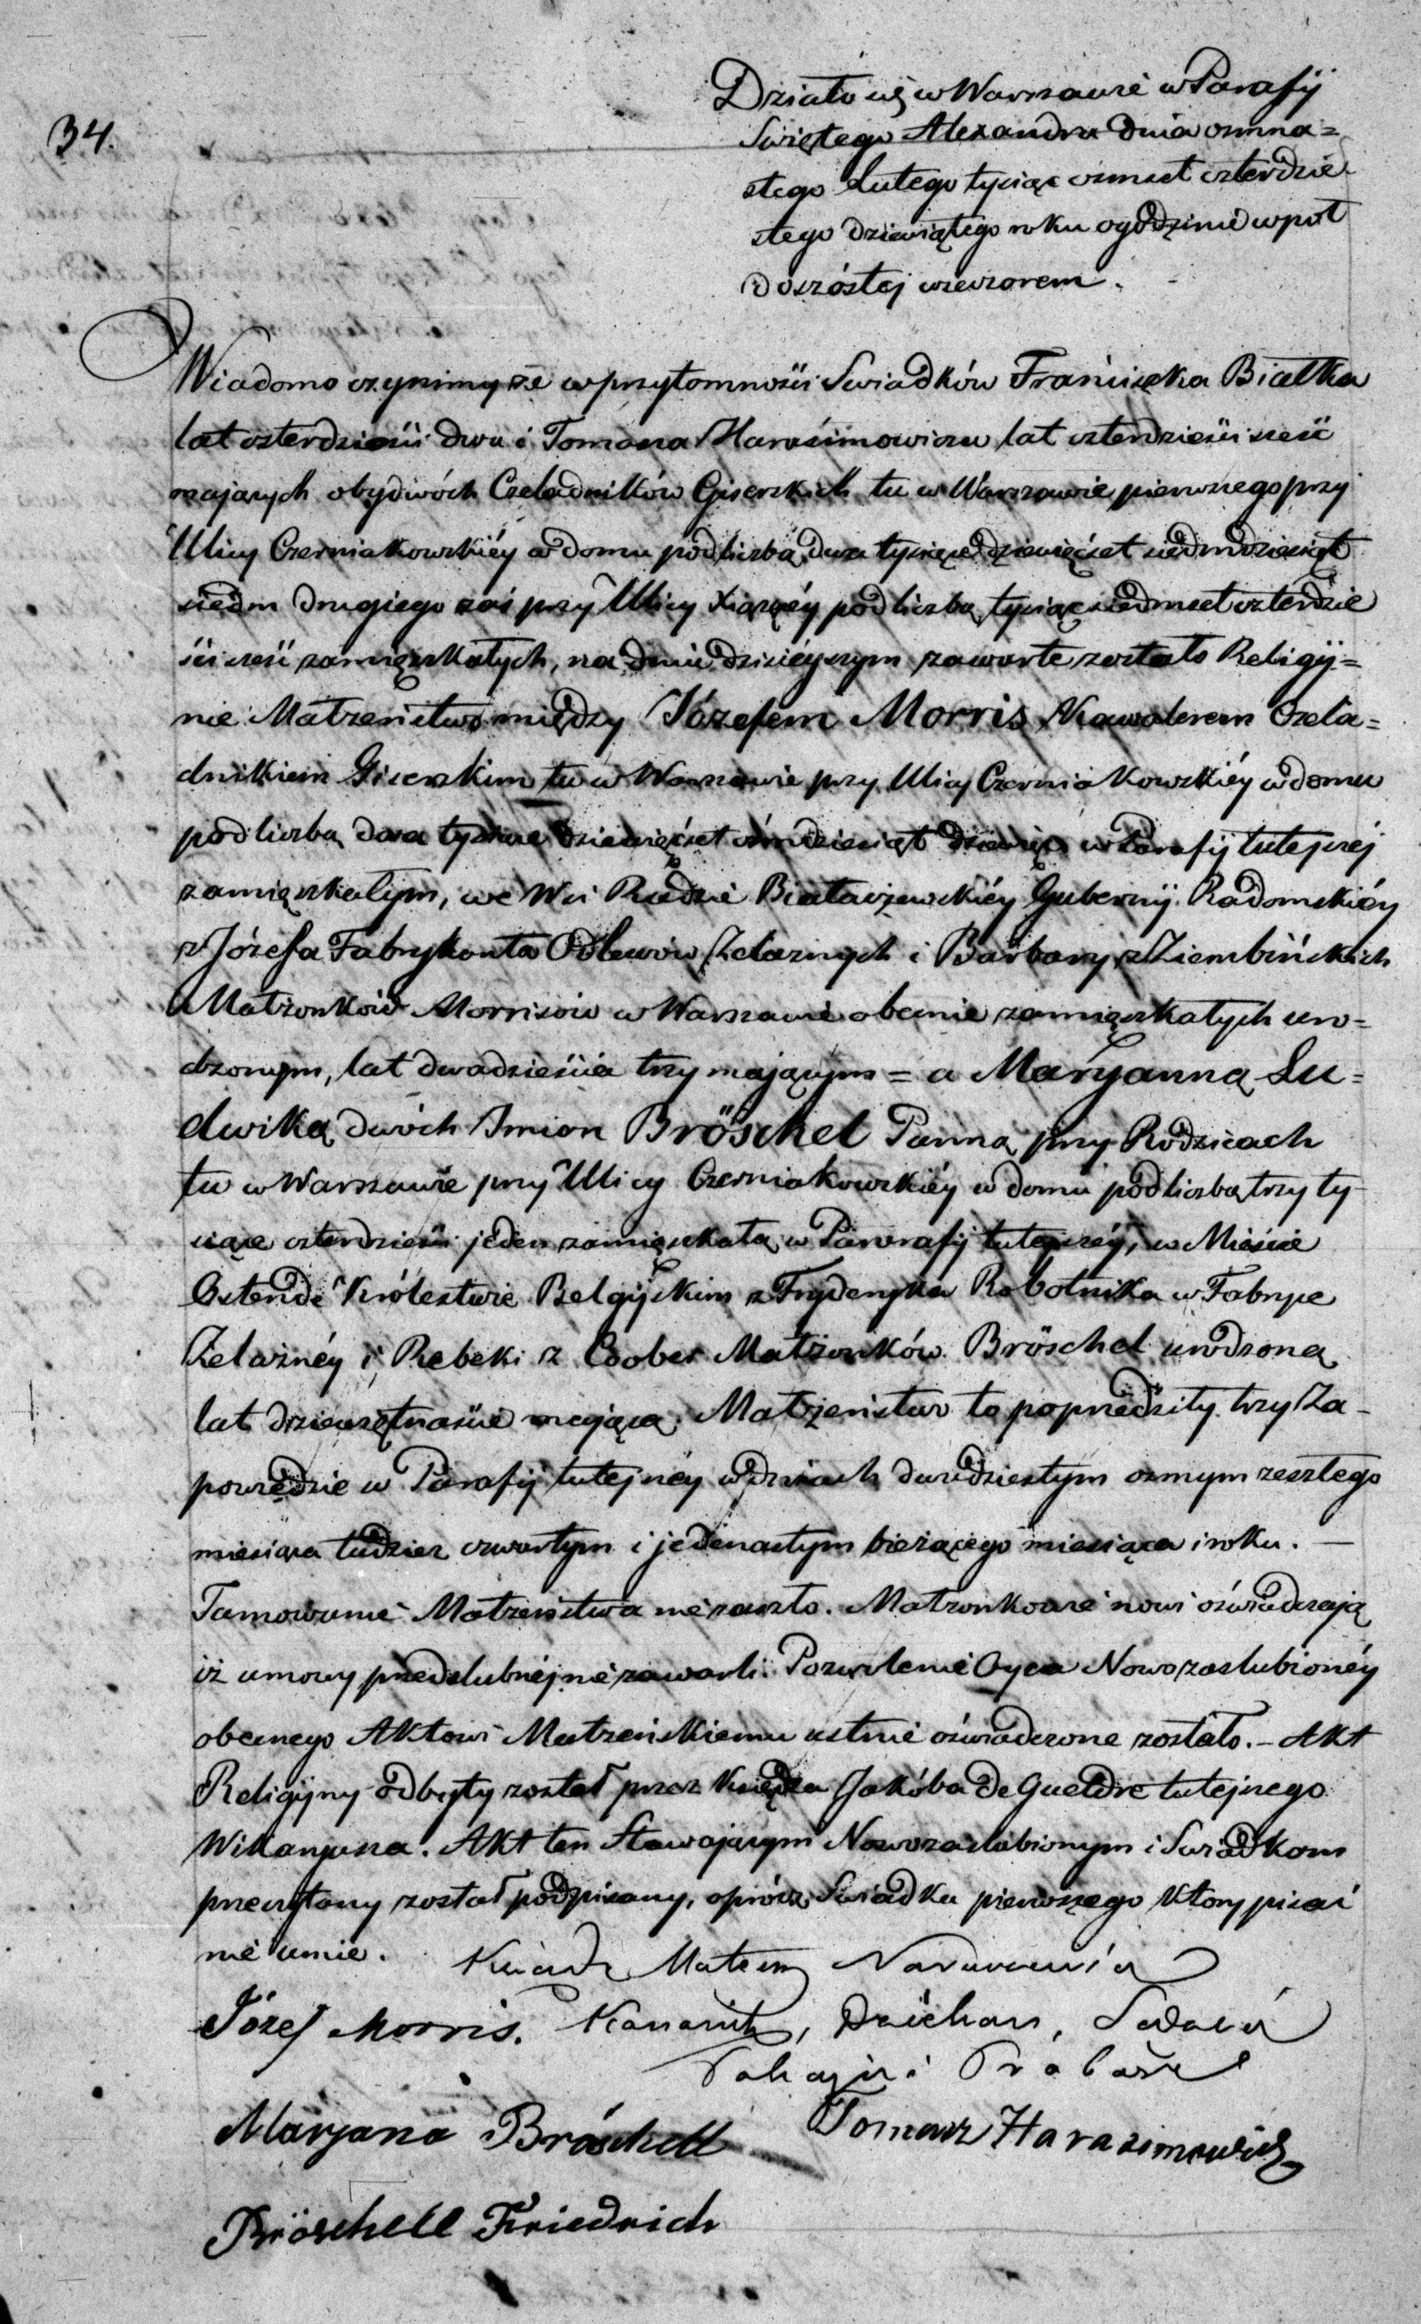 34.
Działo się w Warszawie w Parafij
Świętego Alexandra dnia osmna=
stego Lutego tysiąc osmset czterdzie
stego dziewiątego roku o godzinie wpół
do szóstej wieczorem.
Wiadomo czynimy że w przytomności Swiadków Franciszka Białka
lat czterdzieści dwa i Tomasza Harasimowicza lat czterdzieści sześć
mających obydwóch Czeladników Giserskich tu w Warszawie pierwszego przy
Ulicy Czerniakowskiéy w domu pod liczbą dwa tysiące dziewięćset siedmdziesiąt
siedm drugiego zaś przy Ulicy Xiążęcéy pod liczbą tysiąc siedmset czterdzie
ści sześć zamięszkałych, na dniu dzisieyszym zawarte zostało Religij=
nie Małżeństwo między Józefem Morris Kawalerem Czela=
dnikiem Giserskim tu w Warszawie przy Ulicy Czerniakowskiéy w domu
pod liczbą dwa tysiące dziewięćset ośmdziesiąt dziewięć w Parafij tutejszéj
zamięszkałym, we Wsi Rudzie Białaczewskiéy Gubernij Radomskiéy
z Józefa Fabrykanta Odlewów Żelaznych i Barbary z Ziembińskich
Małżonków Morrisów w Warszawie obecnie zamięszkałych uro=
dzonym, lat dwadzieścia trzy mającym = a Maryanną Lu=
dwiką dwóch Imion Bröschel Panną przy Rodzicach
tu w Warszawie przy Ulicy Czerniakowskiéy w domu pod liczbą trzy ty
siące czterdzieści jeden zamięszkałą w Parafij tutejszéy, w Mieście
Ostende Królestwie Belgijskim z Fryderyka Robotnika w Fabryce
Żelaznéy i Rebeki z Coober Małżonków Bröschel urodzoną
lat dziewiętnaście mającą. Małżeństwo to poprzedziły trzy Za-
powiędzie w Parafij tutejszéy w dniach dwudziestym osmym zeszłego
miesiąca tudzież czwartym i jedenastym bieżącego miesiąca i roku. —
Tamowanie Małżeństwa nie zaszło. Małżonkowie nowi oświadczają
iż umowy przedslubnéj nie zawarli. Pozwolenie Oyca Nowozaslubionéy
obecnego Aktowi Małżeńskiemu ustnie oświadczone zostało. – Akt
Religijny odbyty został przez Księdza Jakóba de Gueldre tutejszego
Wikaryusza. Akt ten Stawającym Nowozaslubionym i Swiadkom
przeczytany został podpisany, oprócz Swiadka pierwszego który pisać
nie umie. Ksiądz Mateusz
Józef Morris. Kanonik, Dziekan,
i
Maryana Bröschell Tomasz Harasimowicz
Bröschell Friedrich